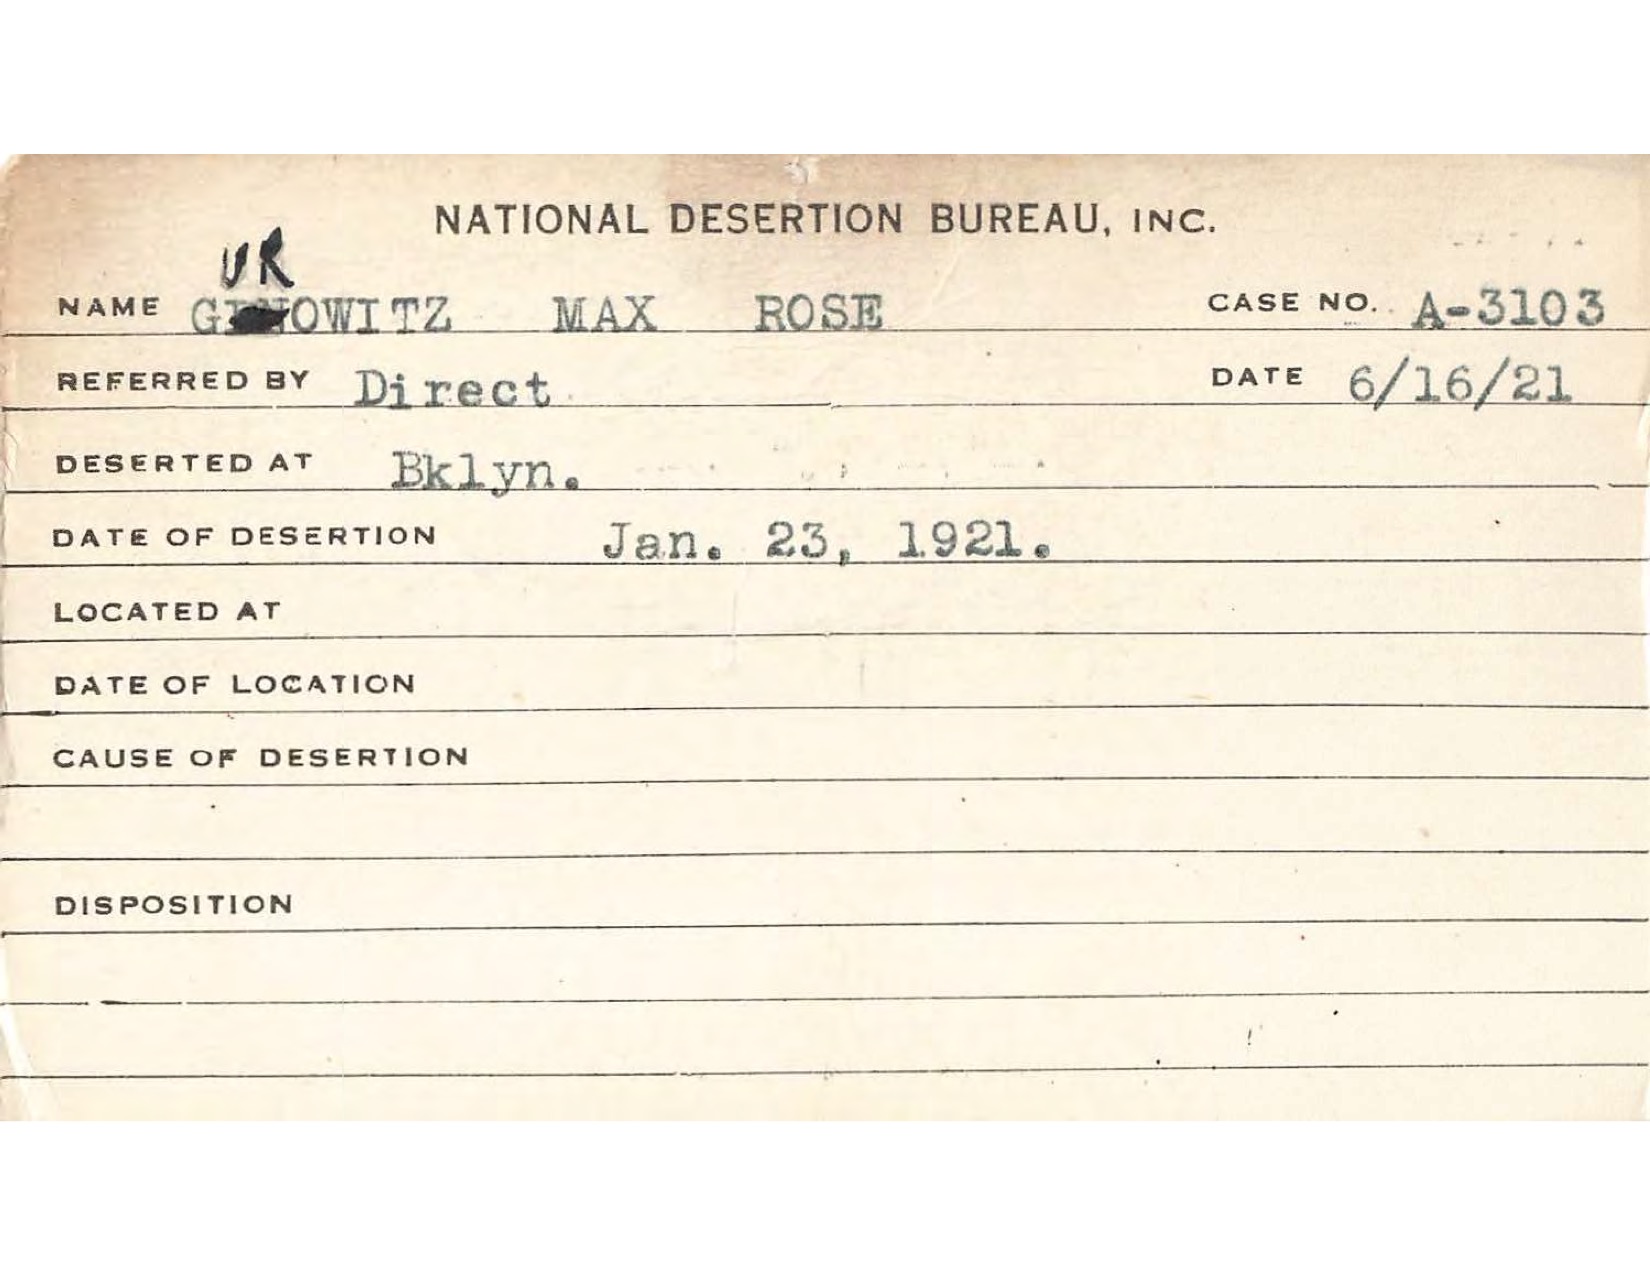 NATIONAL DESERTION BUREAU, INC.
UR
NAME G OWITZ MAX ROSE CASE NO. A-3103
REFERRED BY Direct DATE 6/16/21
DESERTED AT Bklyn.
DATE OF DESERTION Jan. 23, 1921.
LOCATED AT
DATE OF LOCATION
CAUSE OF DESERTION
DISPOSITION